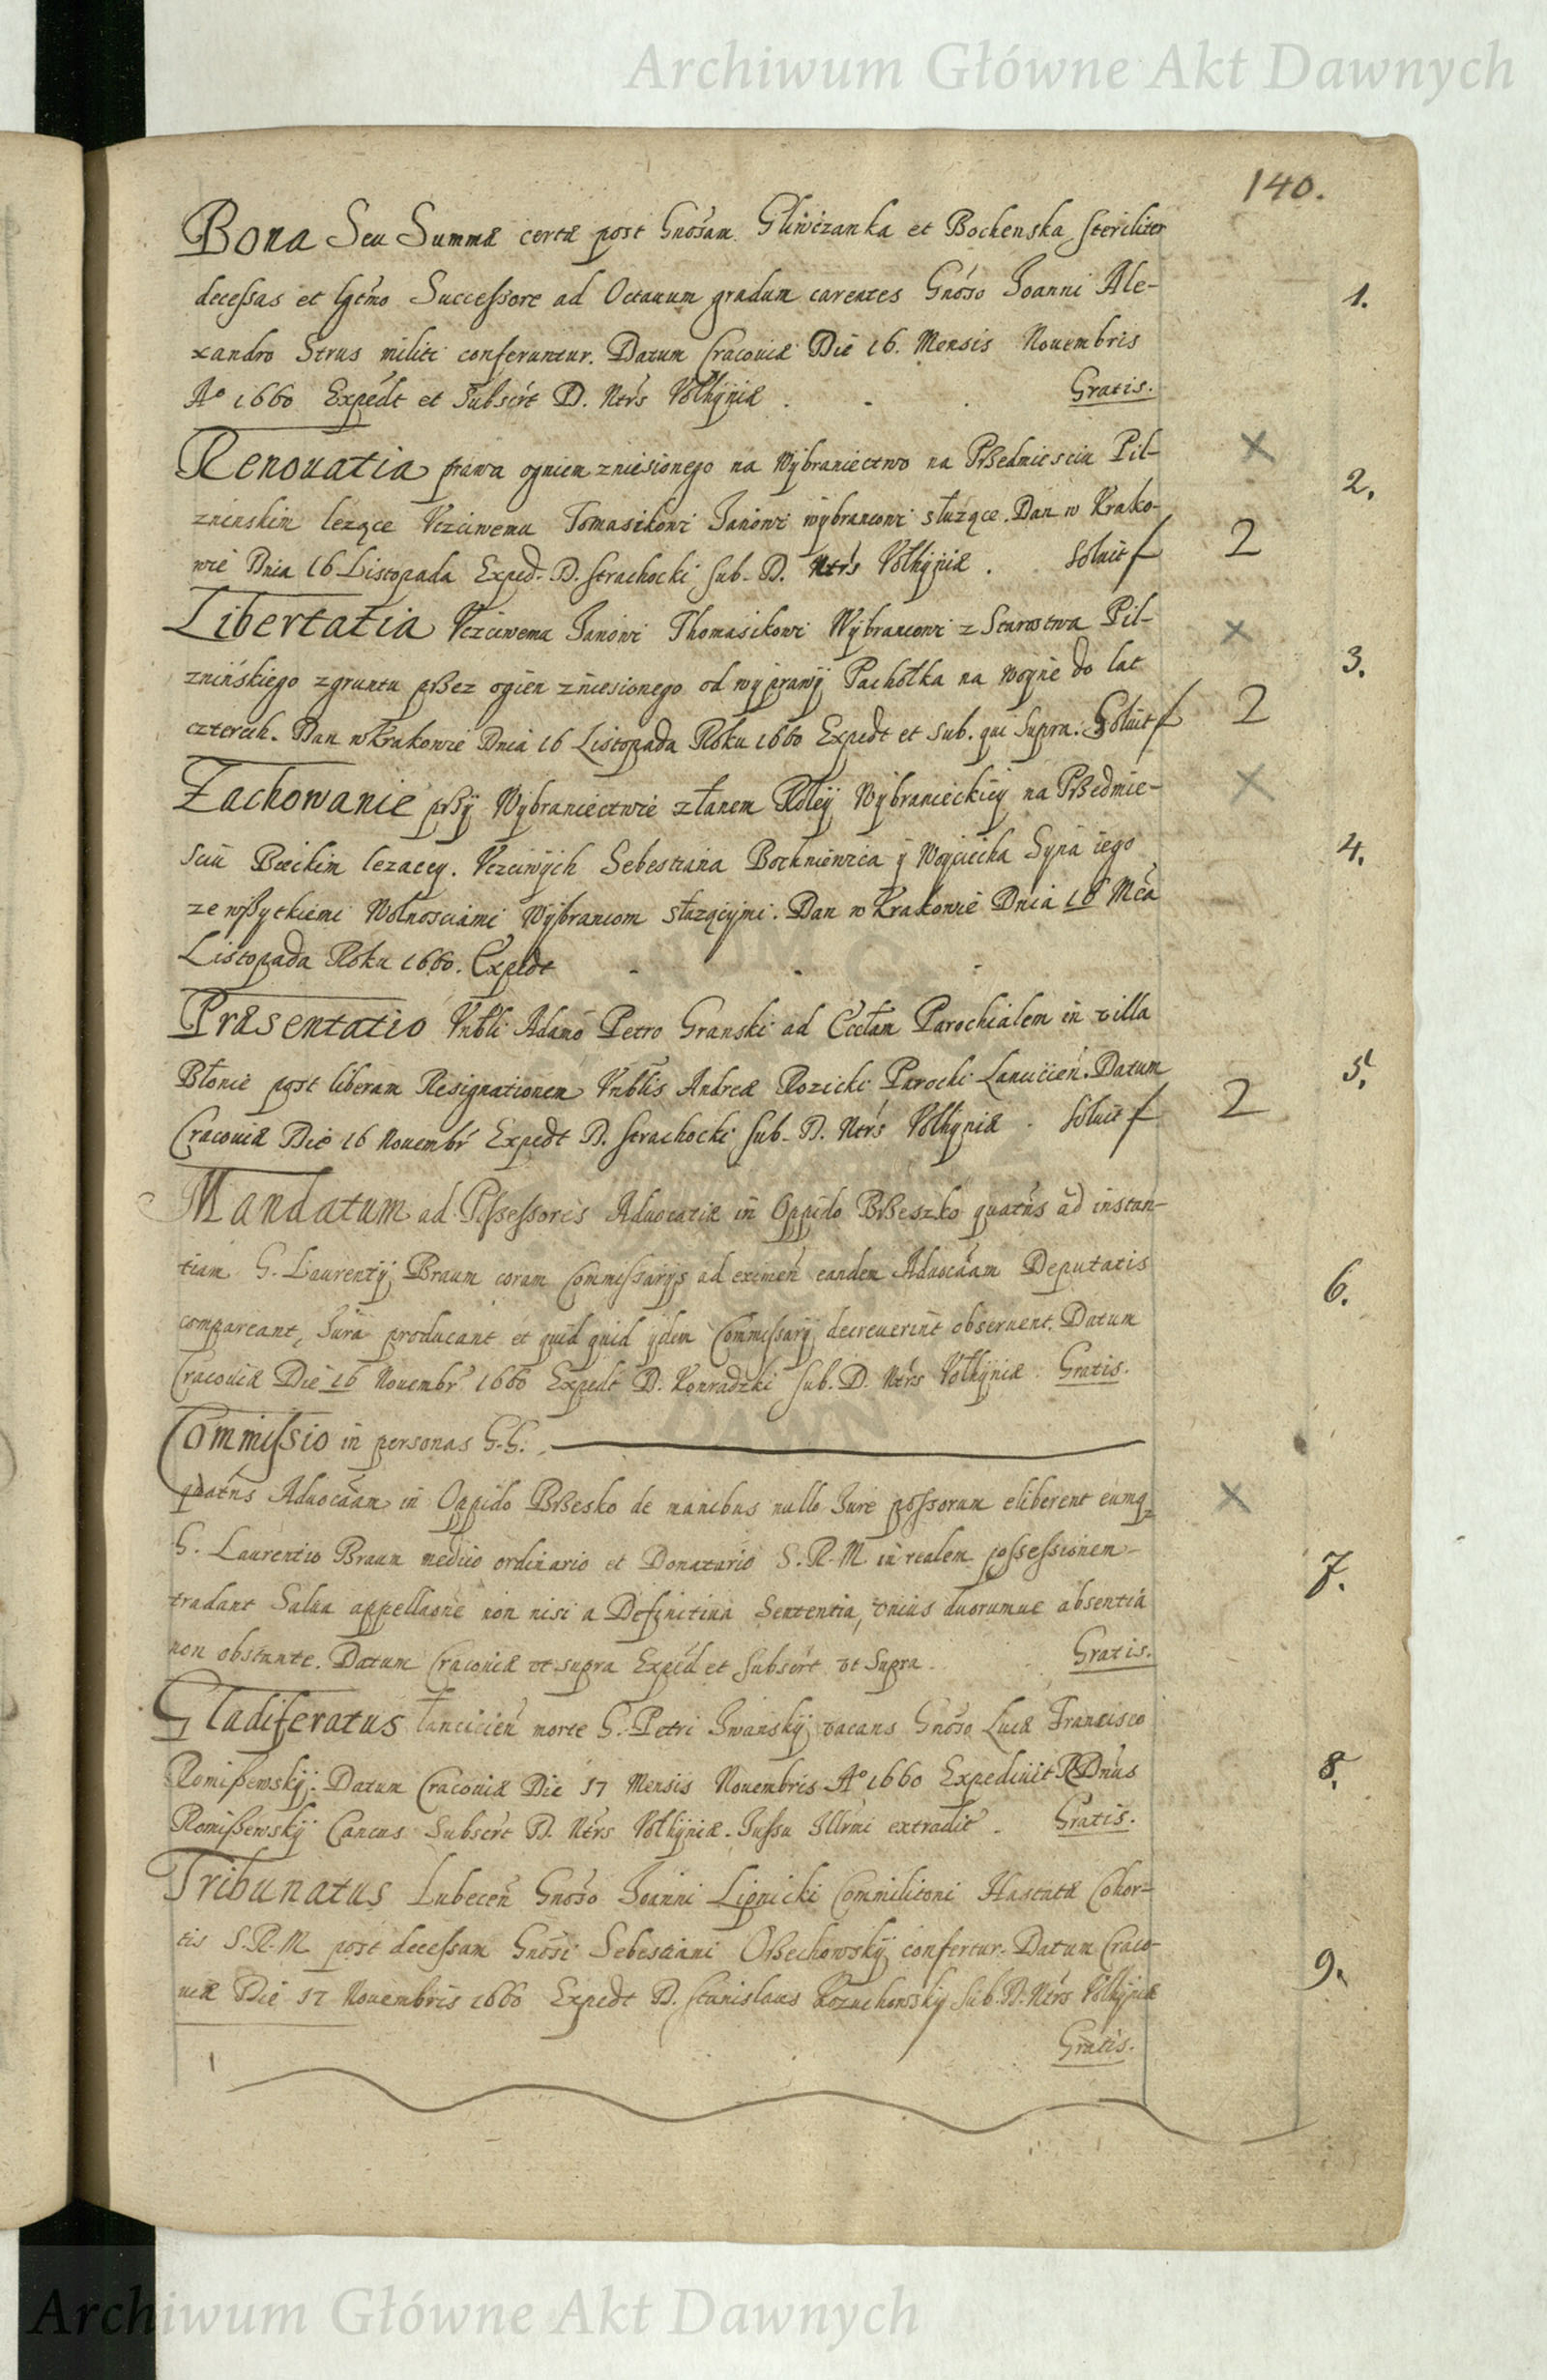 Archiwum Główne Akt Dawnych
140.
Bona Seu Summæ certæ post Gnosam Gliwiczanka et Bochenska steriliter
decessas et lgtmo Successore ad Octauum gradum carentes Gnoso Joanni Ale-
xandro Strus militi conferuntur. Datum Cracouiæ Die 16. Mensis Nouembris
Aº 1660 Expedt et Subscrt D. Ntrs Volhyniæ . - . Gratis.
1.
Renouatia prawa ogniem zniesionego na Wybraniectwo na Przedmiesciu Pil-
znienskim lezące Vczciwemu Tomasikowi Janowi wybrancowi służące. Dan w Krako-
wie Dnia 16 Listopada Exped. D. Strachocki Sub. D. Ntrs Volhyniæ . Soluit f 2
2.
Libertatia Vczciwemu Janowi Thomasikowi Wybrancowi z Starostwa Pil-
znińskiego z gruntu przez ogien zniesionego od wyprawy Pachołka na woyne do lat
czterech. Dan w Krakowie Dnia 16 Listopada Roku 1660 Expedt et Sub. qui Supra. Soluit f 2
3.
Zachowanie przy Wybraniectwie z łanem Roley Wybranieckiey na Przedmie-
sciu Bieckim lezacey. Vczciwych Sebestiana Bochniewica y Woyciecha Syna iego
ze wszytkiemi Wolnosciami Wybrancom służącymi. Dan w Krakowie Dnia 16 Mca
Listopada Roku 1660. Expedt - - -
4.
Præsentatio Vnbli Adamo Petro Granski ad Ecclam Parochialem in villa
Błonie post liberam Resignationem Vnblis Andreæ Rozicki Parochi Lanicien. Datum
Cracouiæ Die 16 Nouembr Expedt D. Strachocki Sub. D. Ntrs Volhyniæ . Soluit f 2
5.
Mandatum ad Possessores Aduocatiæ in Oppido Brzeszko quatns ad instan-
tiam G. Laurentij Braun coram Commissarijs ad eximen eandem Aduocaam Deputatis
compareant, Jura producant et quid quid ijdem Commissarij decreuerint obseruent. Datum
Cracouiæ Die 16 Nouembr 1660 Expedt D. Konradzki Sub. D. Ntrs Volhyniæ . Gratis.
6.
Commissio in personas G.G.
quatns Aduocaam in Oppido Brzesko de manibus nullo Jure possorum eliberent eamq
G. Laurentio Braun medico ordinario et Donatario S.R.M in realem possessionem
tradant Salua appellaone non nisi a Definitiua Sententia, vnius duorumue absentia
non obstante. Datum Cracouiæ vt supra Exped et Subscrt vt Supra. Gratis.
7.
Gladiferatus Lancicien morte G. Petri Iwanskij vacans Gnoso Lucæ Francisco
Romiszewskij. Datum Cracouiæ Die 17 Mensis Nouembris Aº 1660 Expediuit R Dnus
Romiszewskij Cancus Subscrt D. Ntrs Volhyniæ. Jussu Illrmi extradit . Gratis.
8.
Tribunatus Lubecen Gnoso Joanni Lipnicki Commilitoni Hastatæ Cohor-
tis S.R.M post decessum Gnosi Sebestiani Orzechowskij confertur. Datum Craco-
uiæ Die 17 Nouembris 1660 Expedt D. Stanislaus Kozuchowskij Sub. D. Ntrs Volhyniæ
Gratis.
9.
Archiwum Główne Akt Dawnych